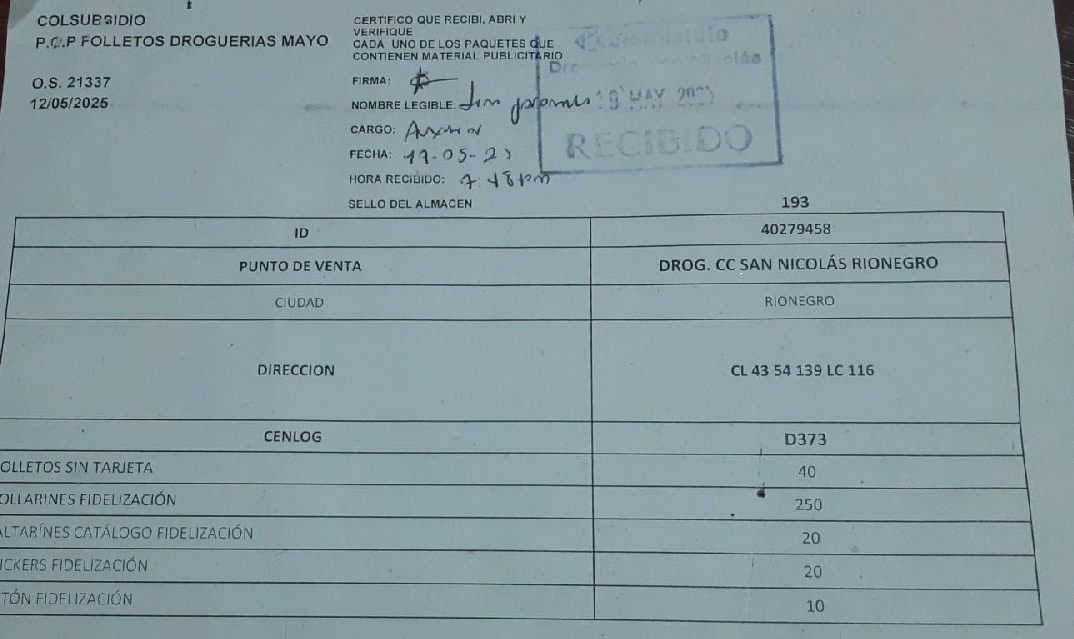 COLSUBSIDIO
P.C.P FOLLETOS DROGUERIAS MAYO
O.S. 21337
12/05/2025
CERTIFICO QUE RECIBI, ABRI Y
VERIFIQUE
CADA UNO DE LOS PAQUETES QUE
CONTIENEN MATERIAL PUBLICITARIO
FIRMA:
NOMBRE LEGIBLE:
CARGO:
FECHA: 19-05-25
HORA RECIBIDO: 7:48pm
SELLO DEL ALMACEN
Colsubsidio
19 MAY 2025
RECIBIDO
193
ID 40279458
PUNTO DE VENTA DROG. CC SAN NICOLÁS RIONEGRO
CIUDAD RIONEGRO
DIRECCION CL 43 54 139 LC 116
CENLOG D373
OLLETOS SIN TARJETA 40
OLLARINES FIDELIZACIÓN 250
ALTARÍNES CATÁLOGO FIDELIZACIÓN 20
ICKERS FIDELIZACIÓN 20
TÓN FIDELIZACIÓN 10